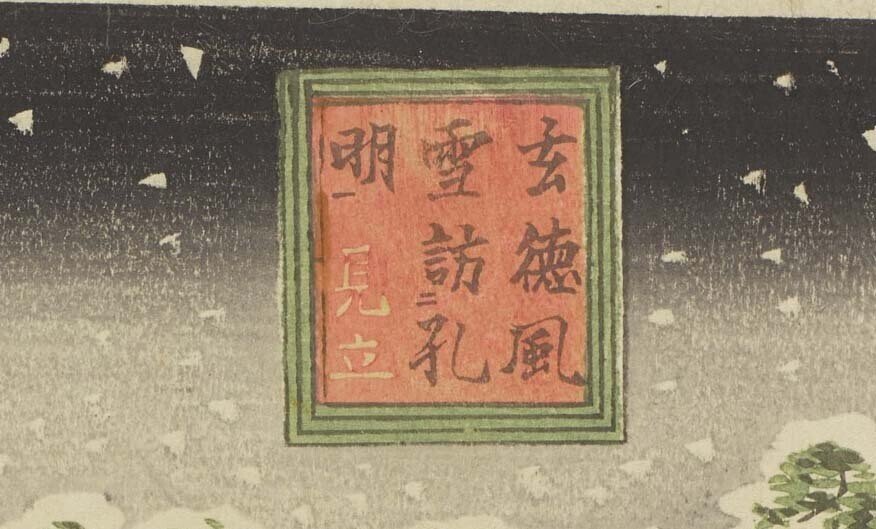 玄徳風
雪訪二孔
明一見立